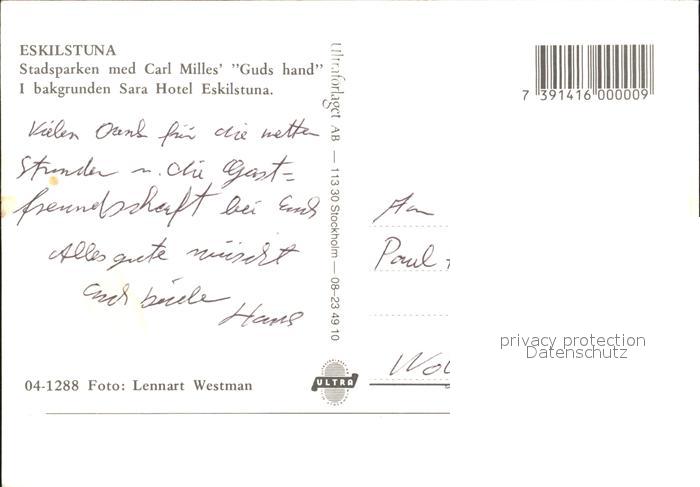 ESKILSTUNA
Stadsparken med Carl Milles' ”Guds hand”
I bakgrunden Sara Hotel Eskilstuna.
Vielen Dank für die netten
Stunden u. die Gast=
freundschaft bei Euch
Alles gute wünscht
Euch beide
Hans
04-1288 Foto: Lennart Westman
Ultraförlaget AB — 113 30 Stockholm — 08-23 49 10
ULTRA
7 391416 000009
An
Paul
Wol
privacy protection
Datenschutz